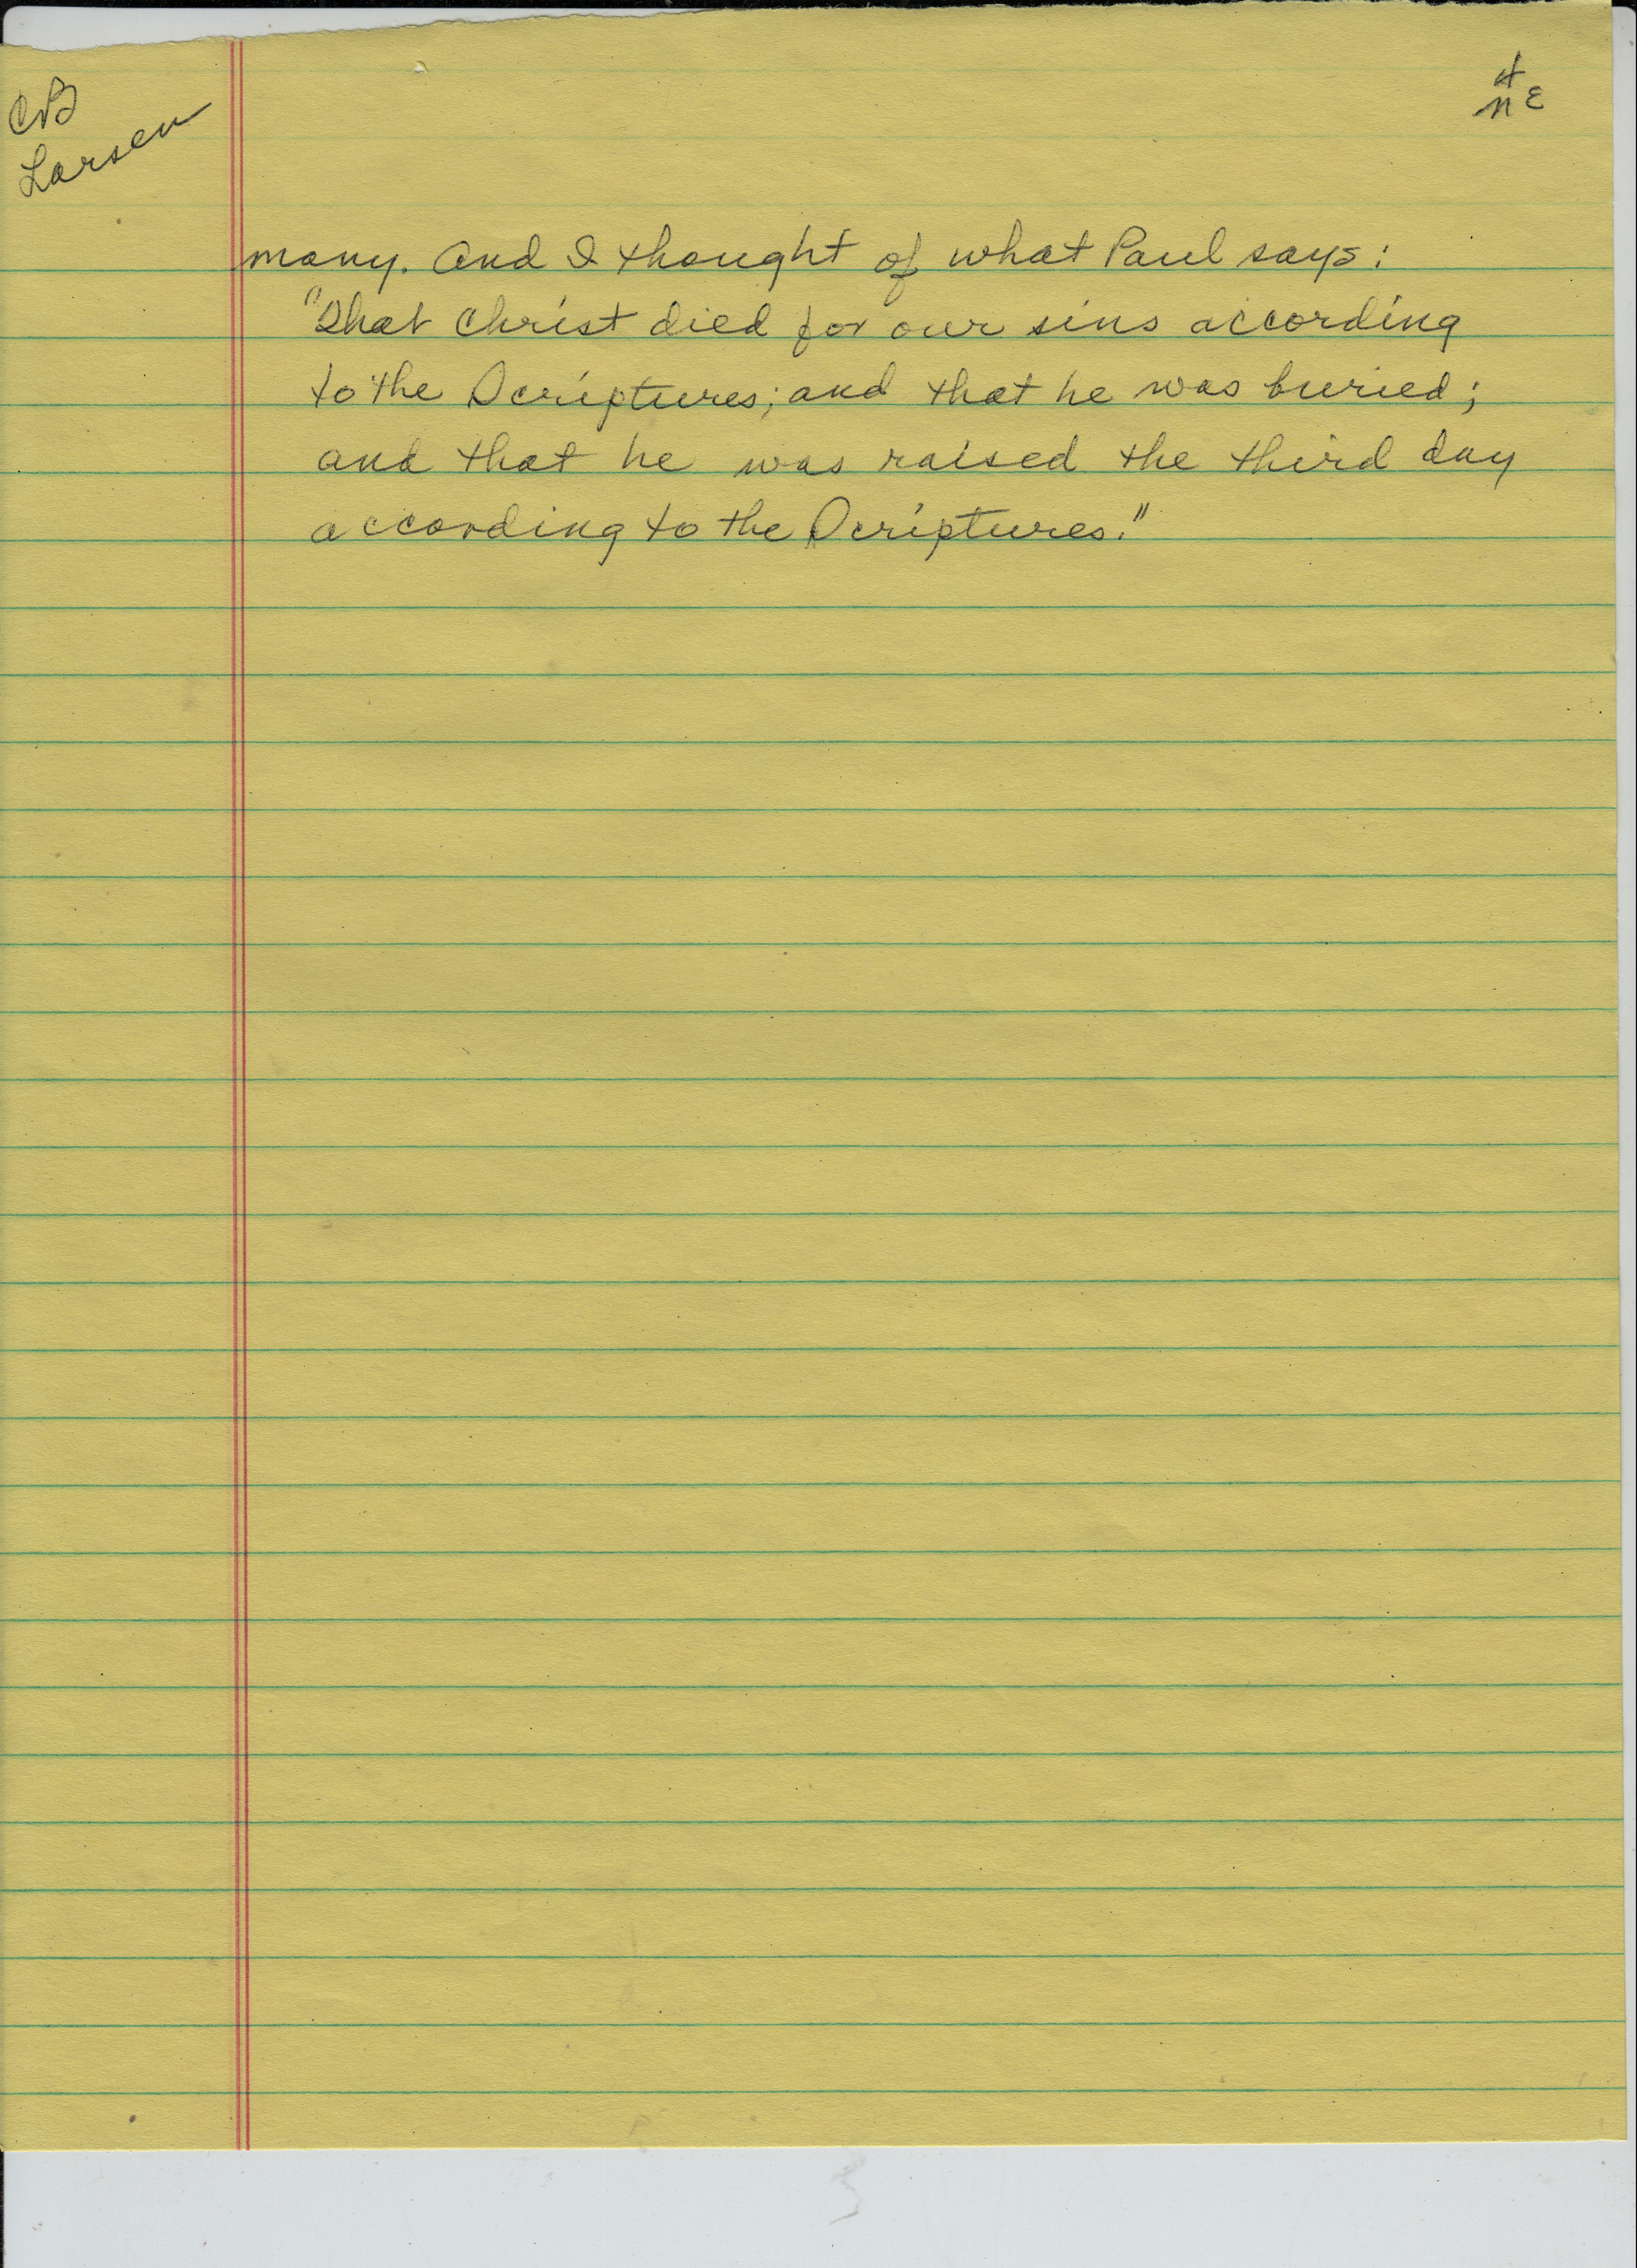 CB
Larsen
many. And I thought of what Paul says:
"That Christ died for our sins according
to the Scriptures; and that he was buried;
and that he was raised the third day
according to the Scriptures."